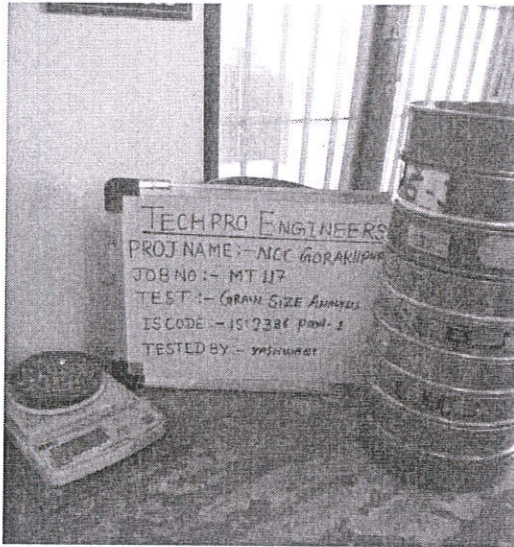 TECHPRO ENGINEERS
PROJ NAME :- NCC GORAKHPUR
JOB NO :- MT 117
TEST :- GRAIN SIZE ANALYSIS
IS CODE :- IS: 2386 Part-1
TESTED BY :- YASHWANT